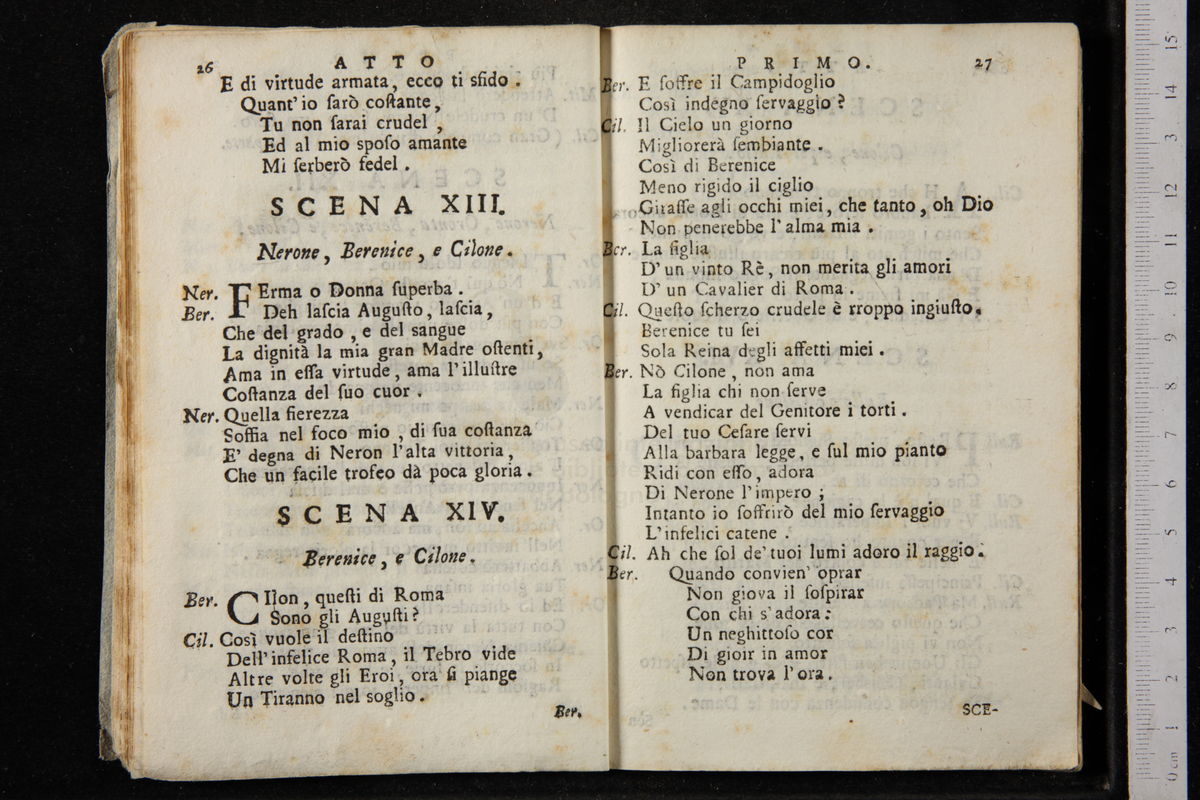 26 ATTO
E di virtude armata, ecco ti sfido.
Quant' io ſarò coſtante,
Tu non ſarai crudel,
Ed al mio spoſo amante
Mi ſerberò fedel.
SCENA XIII.
Nerone, Berenice, e Cilone.
Ner. FErma o Donna ſuperba.
Ber. Deh laſcia Auguſto, laſcia,
Che del grado, e del sangue
La dignità la mia gran Madre oſtenti,
Ama in eſſa virtude, ama l'illuſtre
Coſtanza del ſuo cuor.
Ner. Quella fierezza
Soffia nel foco mio, di ſua coſtanza
E' degna di Neron l'alta vittoria,
Che un facile trofeo dà poca gloria.
SCENA XIV.
Berenice, e Cilone.
Ber. CIlon, queſti di Roma
Sono gli Auguſti?
Cil. Così vuole il deſtino
Dell'infelice Roma, il Tebro vide
Altre volte gli Eroi, ora ſi piange
Un Tiranno nel soglio.
Ber.
PRIMO. 27
Ber. E ſoffre il Campidoglio
Così indegno ſervaggio?
Cil. Il Cielo un giorno
Migliorerà ſembiante.
Così di Berenice
Meno rigido il ciglio
Giraſſe agli occhi miei, che tanto, oh Dio
Non penerebbe l'alma mia.
Ber. La figlia
D'un vinto Rè, non merita gli amori
D'un Cavalier di Roma.
Cil. Queſto ſcherzo crudele è rroppo ingiuſto.
Berenice tu ſei
Sola Reina degli affetti miei.
Ber. Nò Cilone, non ama
La figlia chi non ſerve
A vendicar del Genitore i torti.
Del tuo Ceſare ſervi
Alla barbara legge, e ſul mio pianto
Ridi con eſſo, adora
Di Nerone l'impero;
Intanto io ſoffrirò del mio ſervaggio
L'infelici catene.
Cil. Ah che ſol de'tuoi lumi adoro il raggio.
Ber. Quando convien' oprar
Non giova il ſoſpirar
Con chi s'adora:
Un neghittoſo cor
Di gioir in amor
Non trova l'ora.
SCE-